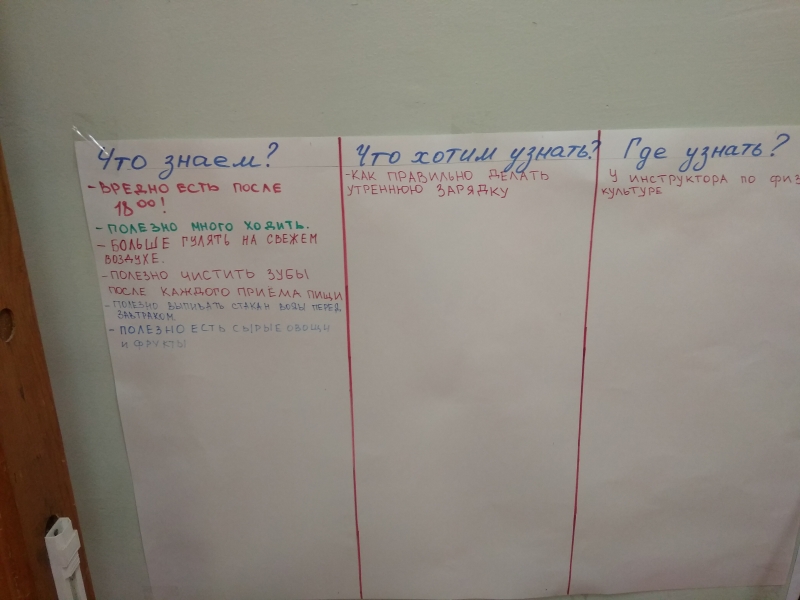 Что знаем?
- ВРЕДНО ЕСТЬ ПОСЛЕ
18⁰⁰!
- ПОЛЕЗНО МНОГО ХОДИТЬ.
- БОЛЬШЕ ГУЛЯТЬ НА СВЕЖЕМ
ВОЗДУХЕ.
- ПОЛЕЗНО ЧИСТИТЬ ЗУБЫ
ПОСЛЕ КАЖДОГО ПРИЁМА ПИЩИ
- ПОЛЕЗНО ВЫПИВАТЬ СТАКАН ВОДЫ ПЕРЕД
ЗАВТРАКОМ.
- ПОЛЕЗНО ЕСТЬ СЫРЫЕ ОВОЩИ
И ФРУКТЫ
Что хотим узнать?
- КАК ПРАВИЛЬНО ДЕЛАТЬ
УТРЕННЮЮ ЗАРЯДКУ
Где узнать?
У ИНСТРУКТОРА ПО ФИЗ
КУЛЬТУРЕ